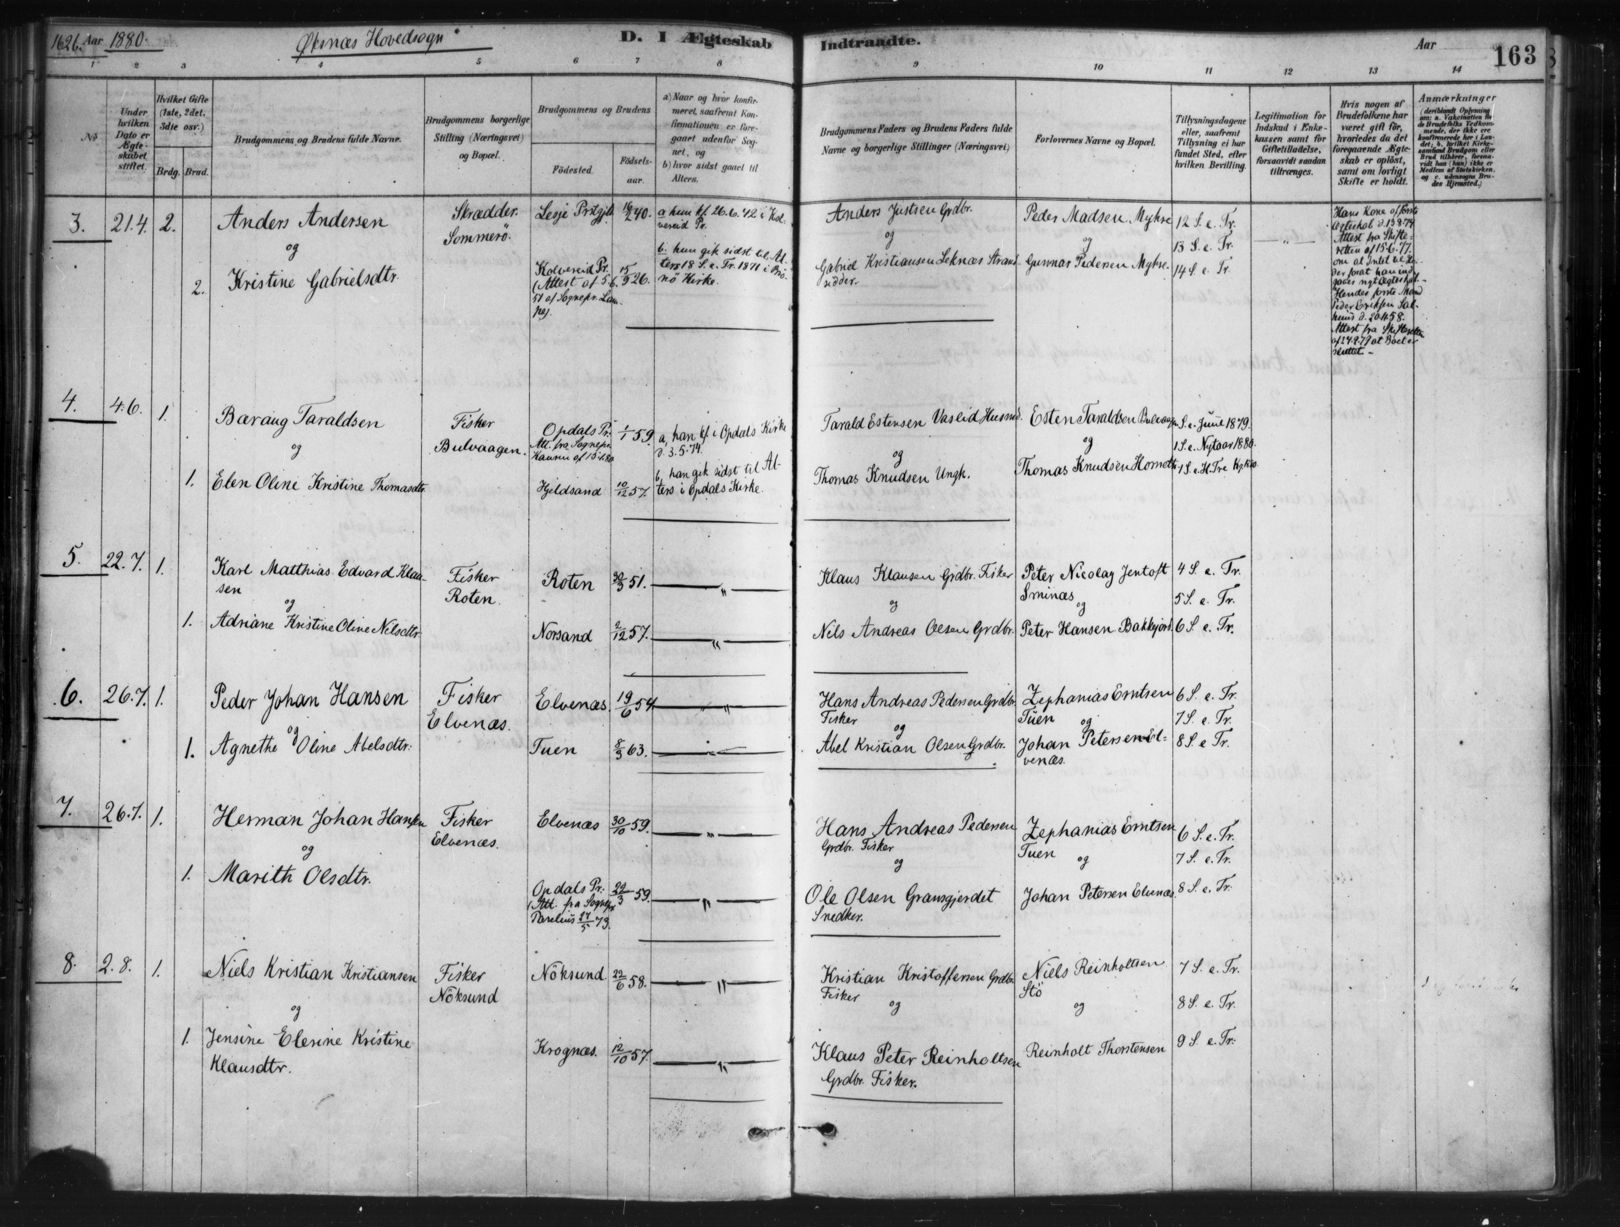 1626. Aar 1880. Øksnæs Hovedsogn. D. I Ægteskab Indtraadte. Aar 163
1 2 3 4 5 6 7 8 9 10 11 12 13 14
No.
Under hvilken Dato er Ægteskabet stiftet.
Hvilket Gifte (1ste, 2det, 3die osv.)
Brdg. Brud.
Brudgommens og Brudens fulde Navne.
Brudgommens borgerlige Stilling (Næringsvei) og Bopæl.
Brudgommens og Brudens
Fødested.
Fødselsaar.
a) Naar og hvor konfirmeret, saafremt Konfirmationen er foregaaet udenfor Sognet, og
b) hvor sidst gaaet til Alters.
Brudgommens Faders og Brudens Faders fulde Navne og borgerlige Stillinger (Næringsvei)
Forlovernes Navne og Bopæl.
Tillysningsdagene eller, saafremt Tillysning ei har fundet Sted, efter hvilken Bevilling.
Legitimation for Indskud i Enkekassen samt for Giftetilladelse, forsaavidt saadan tiltrænges.
Hvis nogen af Brudefolkene har været gift før, hvorledes da det foregaaende Ægteskab er opløst, samt om lovligt Skifte er holdt.
Anmærkninger
3. 21.4. 2. Anders Andersen
og
2. Kristine Gabrielsdtr.
Skrædder.
Sommerø.
Lesje Prstgjld 16/2 40.
Kolvereid Pr. 15/9 26.
(Attest af 5.6.
51 af Sognepr. Lampe)
a. hun kf. 26.6.42 i Kolvereid Pr.
b. hun gik sidst til Alters 18 S. e. Tr. 1871 i Brønø Kirke.
Anders Justsen Grdbr.
og
Gabriel Kristiansen Leknæs Strandsidder.
Peder Madsen Myhre
og
Gunnar Pedersen Myhre.
12 S. e. Tr.
13 S. e. Tr.
14 S. e. Tr.
Hans Kone af første
Ægteskab d. 13.9.79
Attest fra Skifteretten af 15.6.77.
om at Intet til Hinder for at han indgaaes nyt Ægteskab.
Hendes første Mand
Peder Eriksen Salhuus d. 20.4.58.
Attest fra Skifteretten
af 24.2.79 at Boet er
sluttet.
4. 4.6. 1. Baraug Taraldsen
og
1. Elen Oline Kristine Thomasdtr.
Fisker
Bulvaagen.
Opdals Pr. 1/1 59.
Att. fra Sognepr.
Hausen af 15.4.80
Hjeldsand 10/12 57.
a, han kf. i Opdals Kirke
d. 3.5.74.
b, han gik sidst til Alters i Opdals Kirke.
Tarald Estensen Vaslid Husmd.
og
Thomas Knudsen Ungk.
Esten Taraldsen Bulvaagen
og
Thomas Knudsen Hornet
S. e. Juul 1879.
1 S. e. Nytaar 1880.
5. 22.7. 1. Karl Matthias Edvard Klausen
og
1. Adriane Kristine Oline Nilsdtr.
Fisker
Roten.
Roten 30/3 51.
Norsand 2/12 57.
Klaus Klausen Grdbr. Fisker
og
Nels Andreas Olsen Grdbr.
Peter Nicolay Jentoft
Sminæs
og
Peter Hansen Bakkejord.
4 S. e. Tr.
5 S. e. Tr.
6 S. e. Tr.
6. 26.7. 1. Peder Johan Hansen
og
1. Agnethe Oline Abelsdtr.
Fisker
Elvenæs.
Elvenæs. 19/6 54.
Tuen 8/3 63.
Hans Andreas Pedersen Grdbr.
Fisker
og
Abel Kristian Olsen Grdbr.
Zephanias Erntsen
Tuen
og
Johan Petersen Elvenæs.
6 S. e. Tr.
7 S. e. Tr.
8 S. e. Tr.
7. 26.7. 1. Herman Johan Hansen
og
1. Marith Olsdtr.
Fisker
Elvenæs.
Elvenæs 30/10 59.
Opdals Pr. 22/3 59.
(Att. fra Sognepr.
Parelius 27/5 79.
Hans Andreas Pedersen
Grdbr. Fisker
og
Ole Olsen Gransgjerdet
Snedker.
Zephanias Erntsen
Tuen
og
Johan Petersen Elvenæs
6 S. e. Tr.
7 S. e. Tr.
8 S. e. Tr.
8. 2.8. 1. Niels Kristian Kristiansen
og
1. Jensine Elerine Kristine
Klausdtr.
Fisker
Nöksund
Nöksund 22/6 58.
Krognæs. 12/10 57.
Kristian Kristoffersen Grdbr.
Fisker
og
Klaus Peter Reinholtsen
Grdbr. Fisker.
Niels Reinholtsen
Stö
og
Reinholt Thorstensen
7 S. e. Tr.
8 S. e. Tr.
9 S. e. Tr.